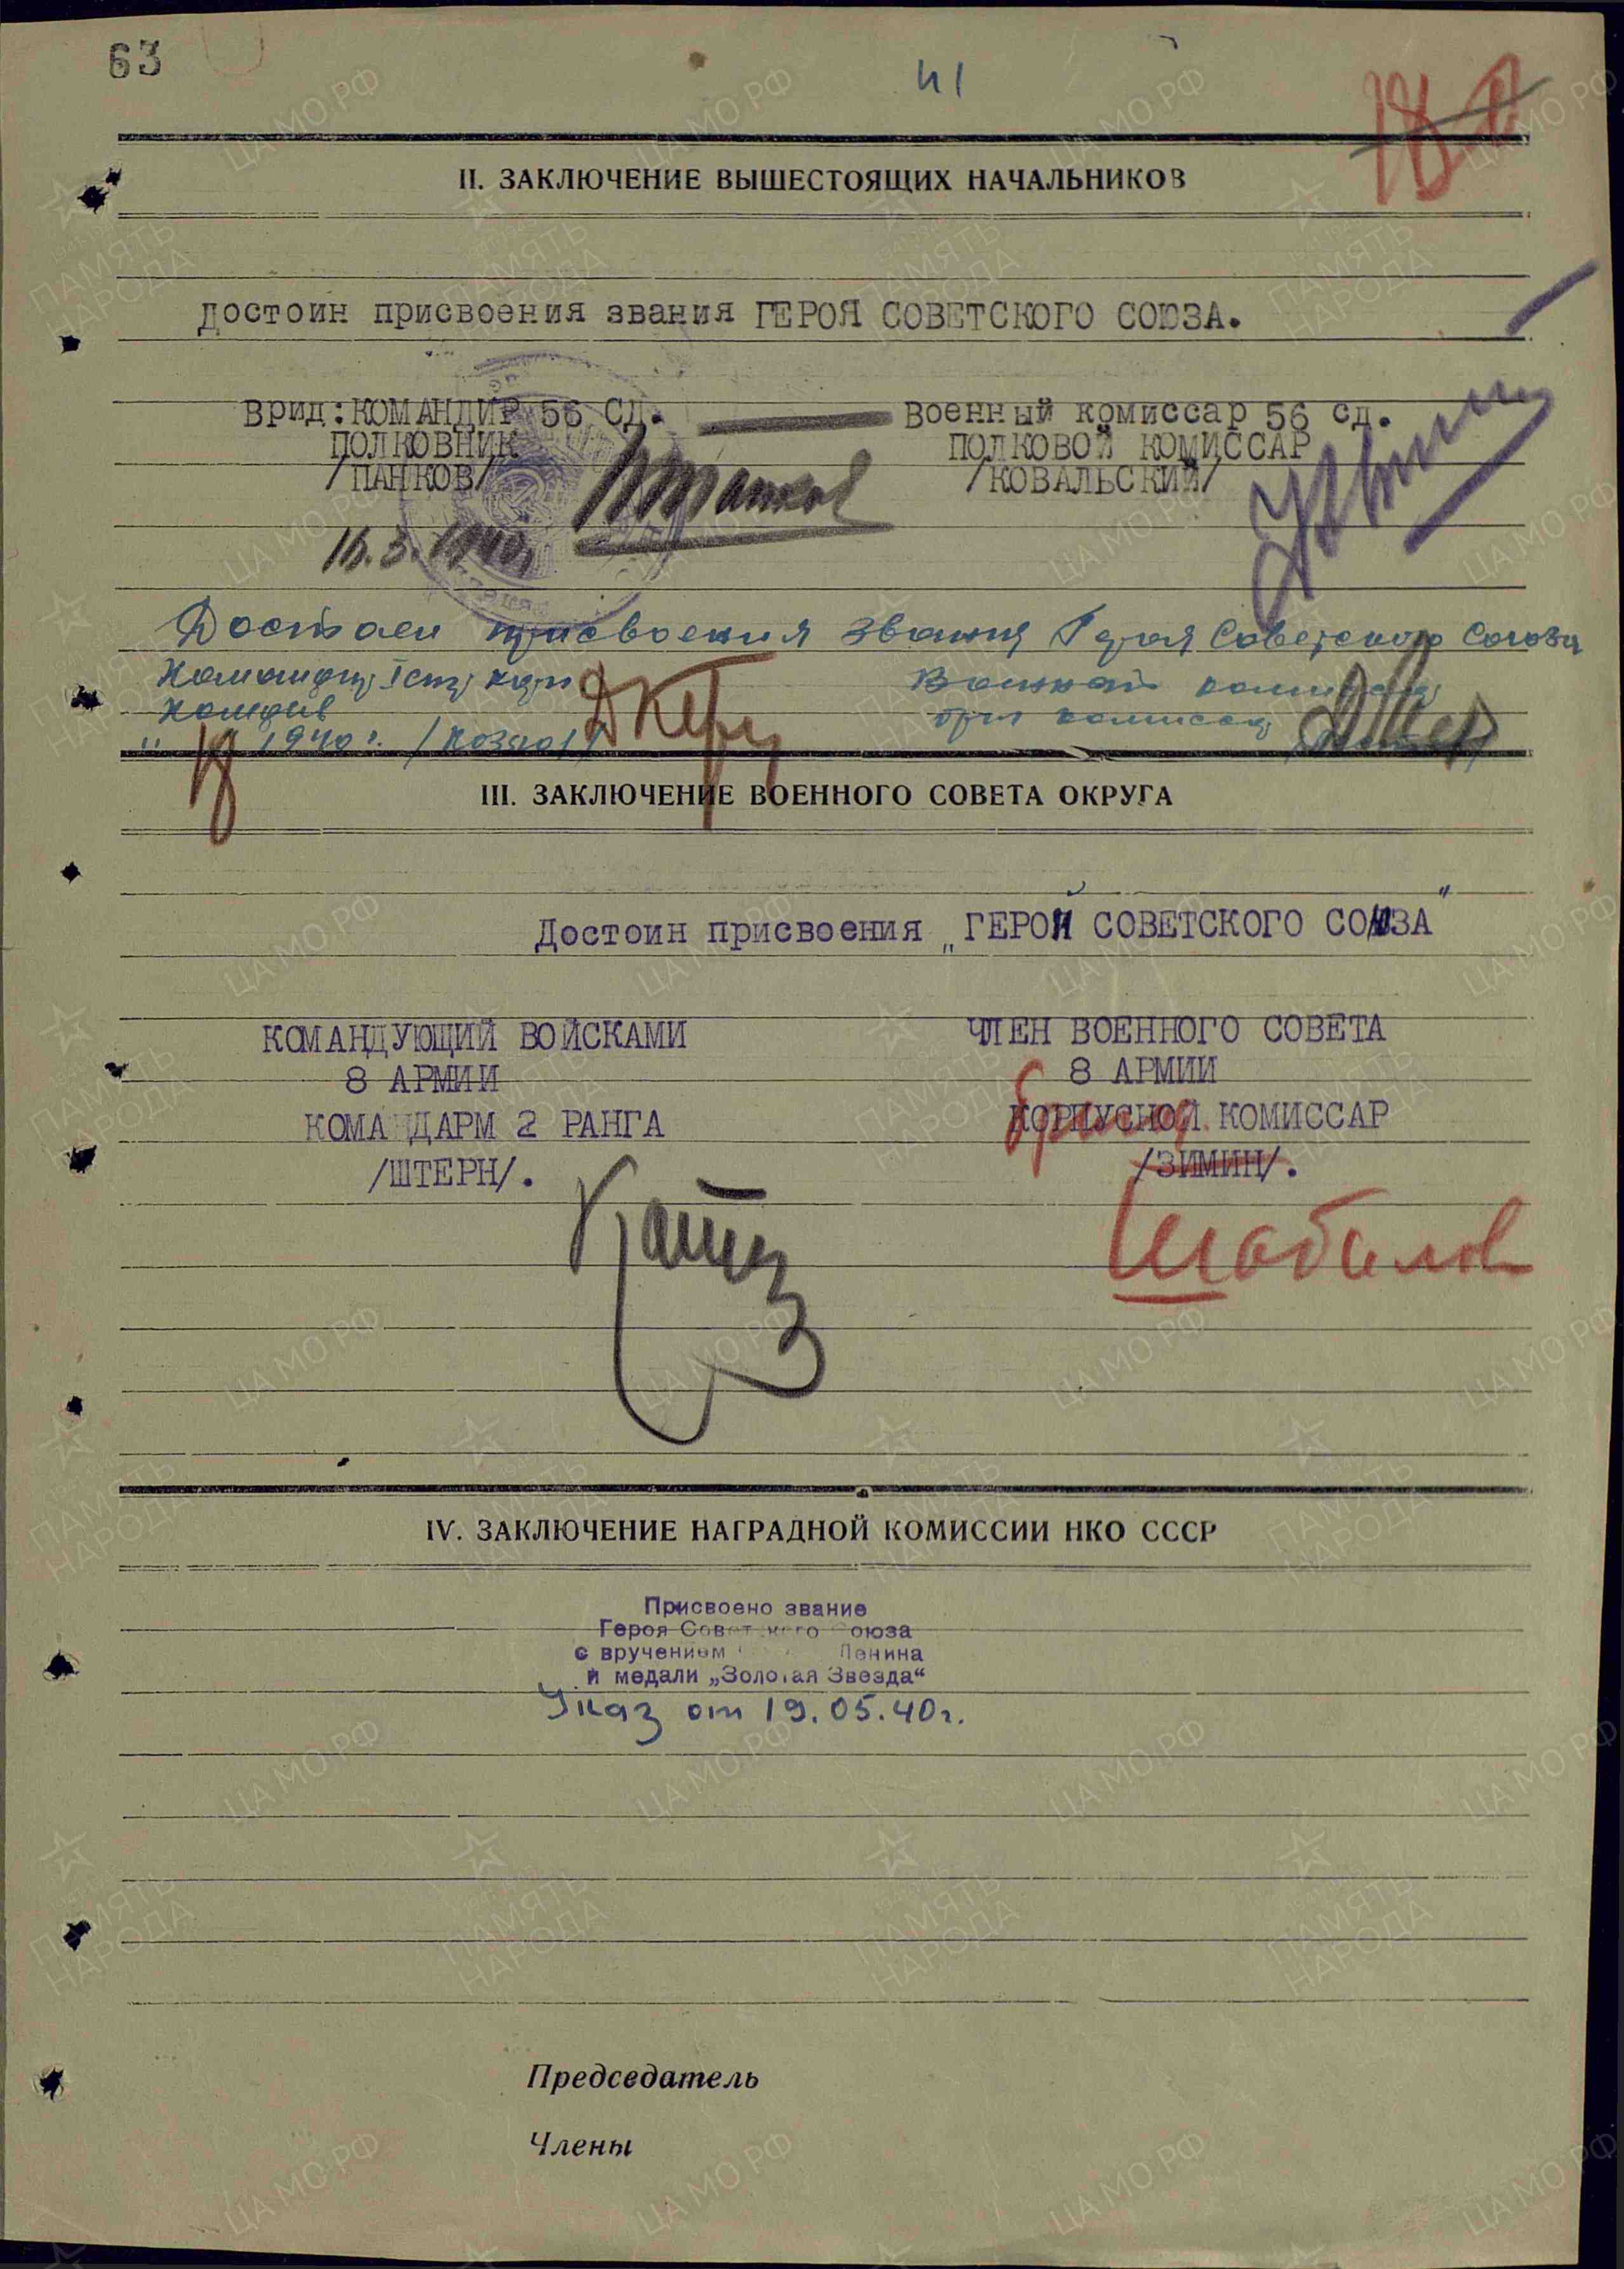 63
41
II. ЗАКЛЮЧЕНИЕ ВЫШЕСТОЯЩИХ НАЧАЛЬНИКОВ
достоин присвоения звания ГЕРОЯ СОВЕТСКОГО СОЮЗА.
Врид: КОМАНДИР 56 СД. Военный комиссар 56 сд.
ПОЛКОВНИК ПОЛКОВОЙ КОМИССАР
/ПАНКОВ/ /КОВАЛЬСКИЙ/
16.3.1940г
Достоен присвоения звания Героя Советского Союза
Командир 1 стр корп Военный комиссар
Комдив бриг комиссар
" 1940 г. /Козлов/
III. ЗАКЛЮЧЕНИЕ ВОЕННОГО СОВЕТА ОКРУГА
Достоин присвоения „ГЕРОЙ СОВЕТСКОГО СОЮЗА"
КОМАНДУЮЩИЙ ВОЙСКАМИ ЧЛЕН ВОЕННОГО СОВЕТА
8 АРМИИ 8 АРМИИ
КОМАНДАРМ 2 РАНГА КОРПУСНОЙ КОМИССАР
/ШТЕРН/. /ЗИМИН/.
Шабалов
IV. ЗАКЛЮЧЕНИЕ НАГРАДНОЙ КОМИССИИ НКО СССР
Присвоено звание
Героя Советского Союза
с вручением Ленина
и медали „Золотая Звезда"
Указ от 19.05.40г.
Председатель
Члены